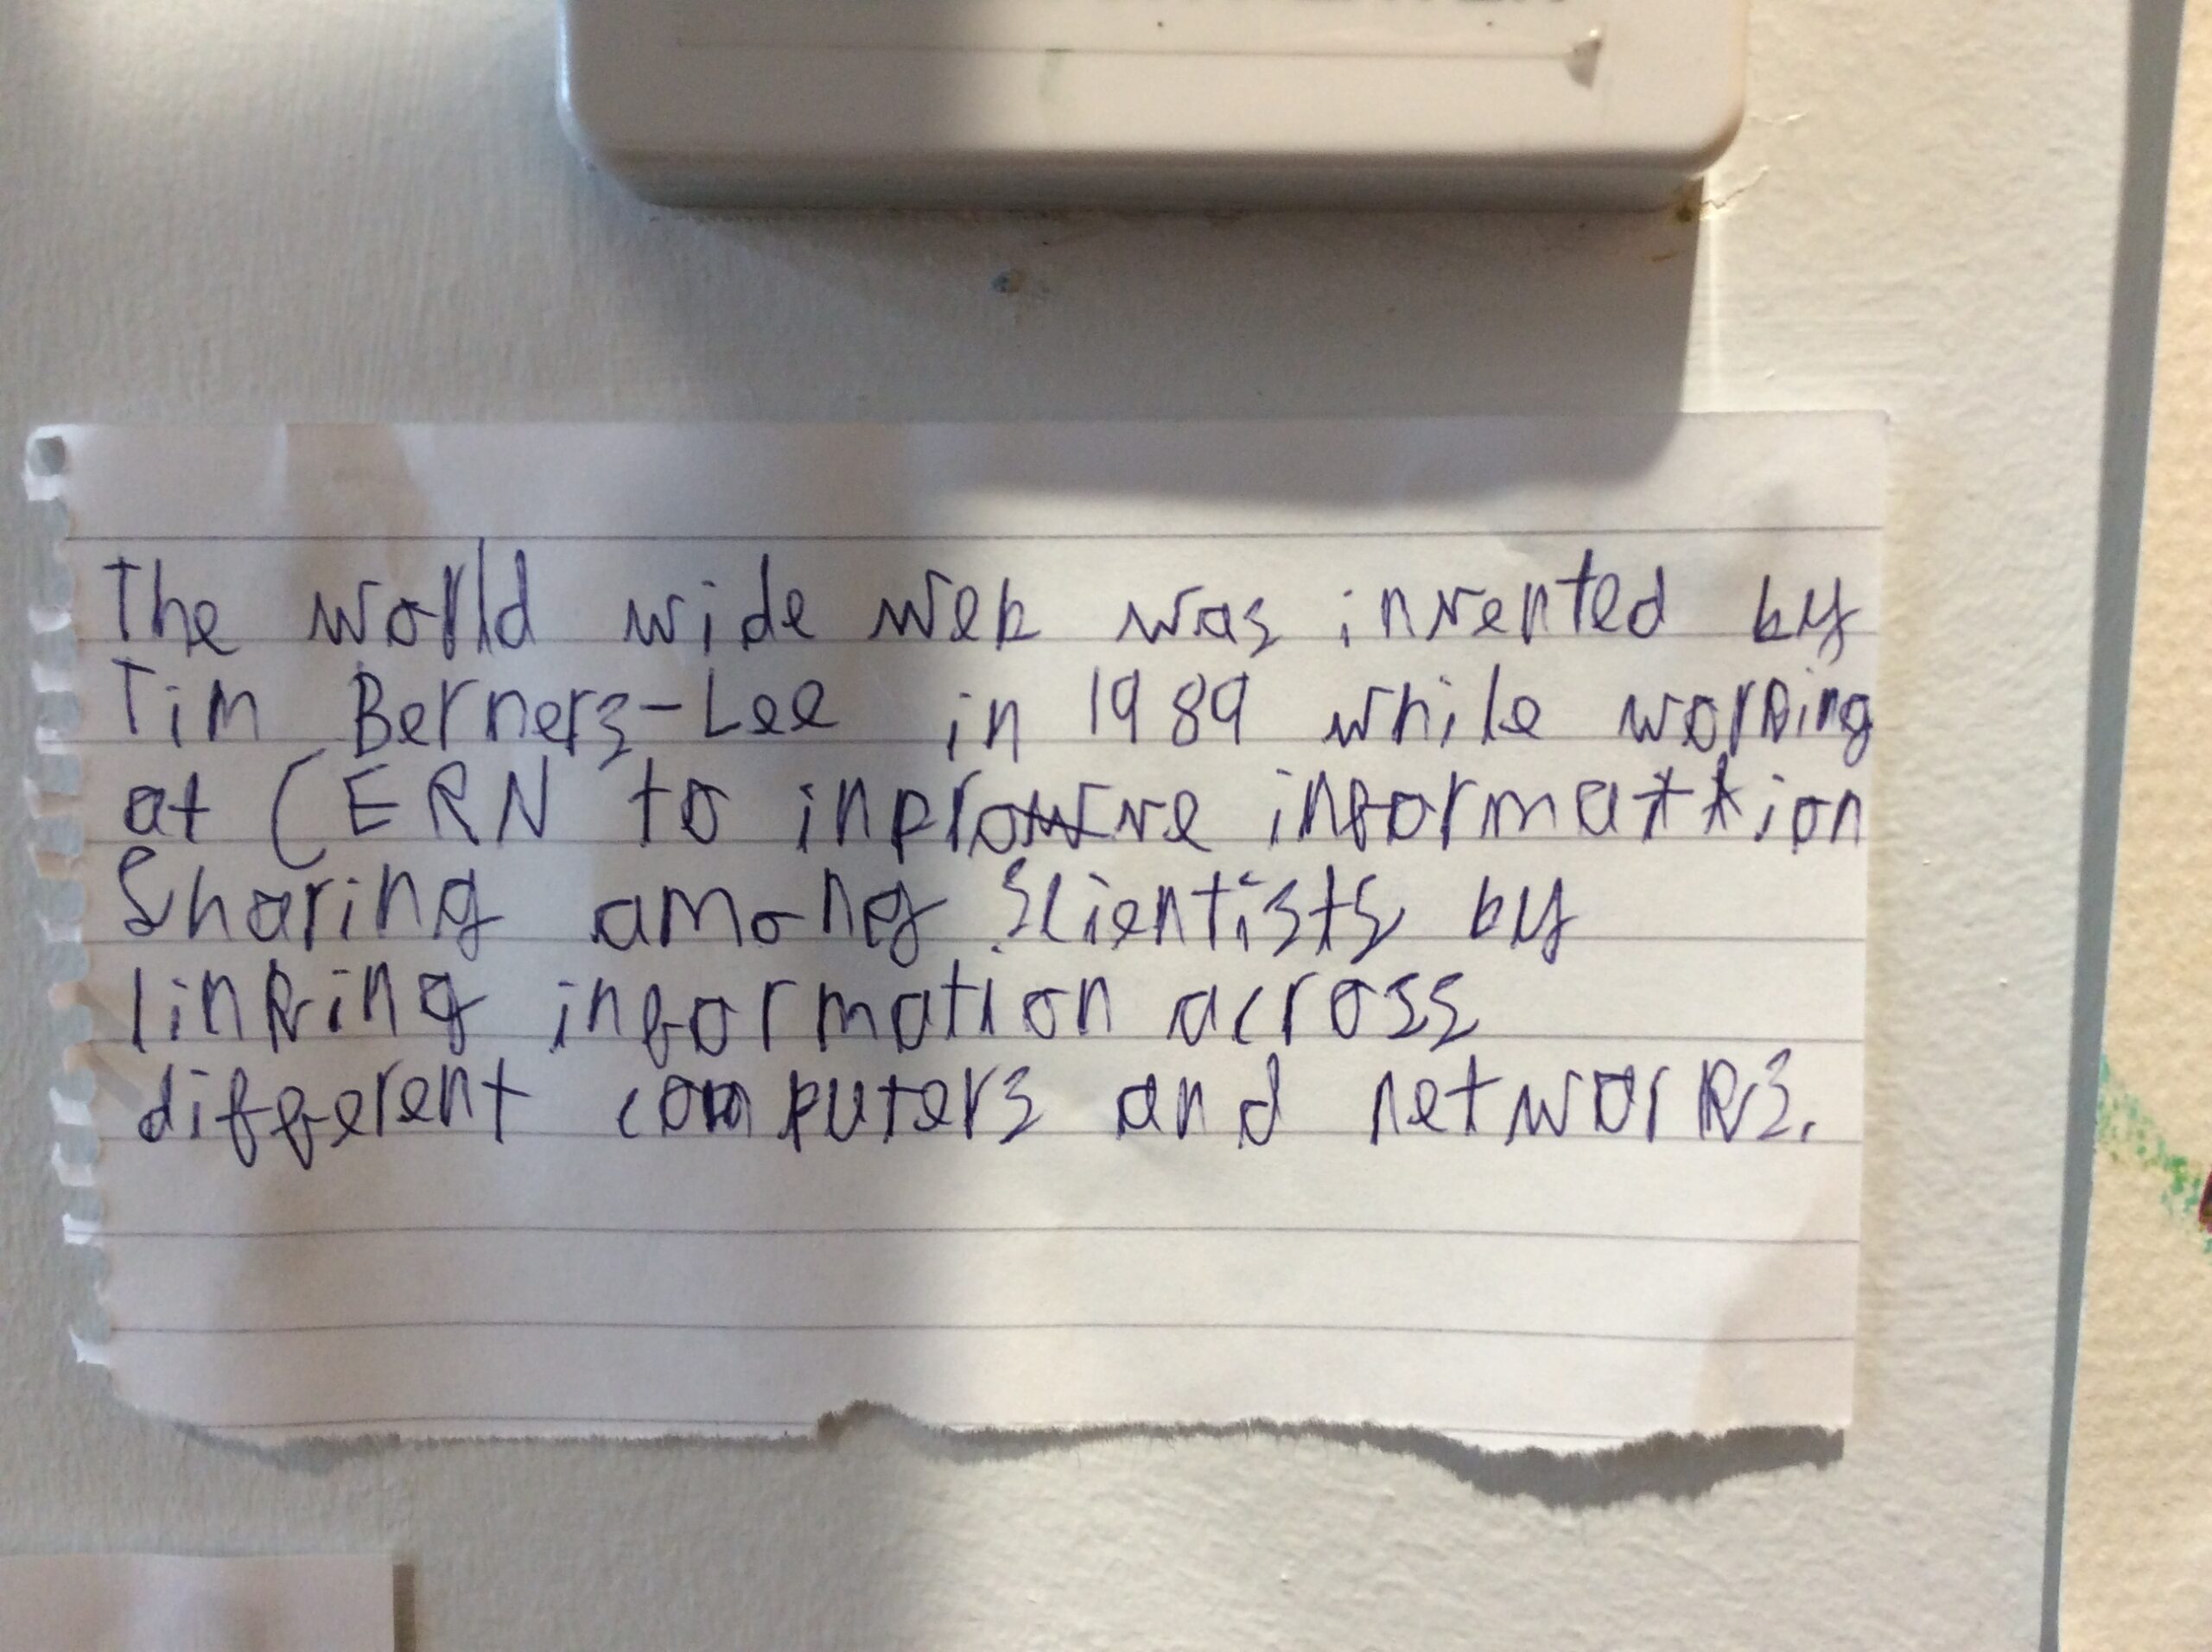 The world wide web was invented by
Tim Berners-Lee in 1989 while working
at CERN to inprove information
Sharing among Scientists by
linking information across
different computers and networks.